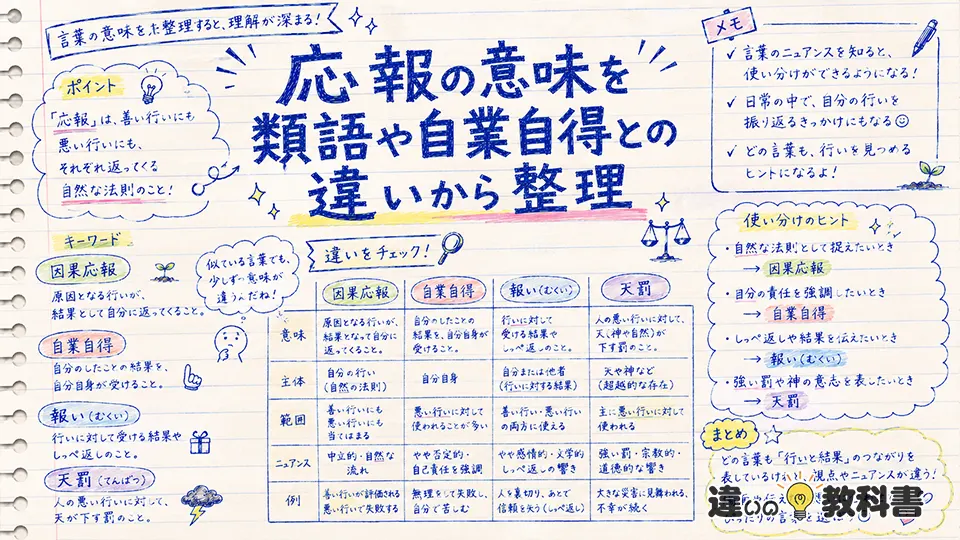 言葉の意味を整理すると、理解が深まる！
応報の意味を
類語や自業自得との
違いから整理
ポイント
「応報」は、善い行いにも
悪い行いにも、
それぞれ返ってくる
自然な法則のこと！
メモ
✓ 言葉のニュアンスを知ると、
使い分けができるようになる！
✓ 日常の中で、自分の行いを
振り返るきっかけにもなる
✓ どの言葉も、行いを見つめる
ヒントになるよ！
キーワード
因果応報
原因となる行いが、
結果として自分に返ってくること。
自業自得
自分のしたことの結果を、
自分自身が受けること。
報い（むくい）
行いに対して受ける結果や
しっぺ返しのこと。
天罰（てんばつ）
人の悪い行いに対して、
天が下す罰のこと。
似ている言葉でも、
少しずつ意味が
違うんだね！
違いをチェック！
因果応報 自業自得 報い（むくい） 天罰
意味
原因となる行いが、
結果となって自分に
返ってくること。
自分のしたことの
結果を、自分自身が
受けること。
行いに対して
受ける結果や
しっぺ返しのこと。
人の悪い行いに対して、
天（神や自然）が
下す罰のこと。
主体
自分の行い
（自然の法則）
自分自身
自分または他者
（行いに対する結果）
天や神など
（超越的な存在）
範囲
善い行いにも
悪い行いにも
当てはまる
悪い行いに対して
使われることが多い
善い行い・悪い行い
の両方に使える
主に悪い行いに対して
使われる
ニュアンス
中立的・自然な
流れ
やや否定的・
自己責任を強調
やや感情的・文学的
しっぺ返しの響き
強い罰・宗教的・
道徳的な響き
例
善い行いが評価される
悪い行いで失敗する
無理をして失敗し、
自分で苦しむ
人を裏切り、あとで
信頼を失う（しっぺ返し）
大きな災害に見舞われる、
不幸が続く
使い分けのヒント
・自然な法則として捉えたいとき
→ 因果応報
・自分の責任を強調したいとき
→ 自業自得
・しっぺ返しや結果を伝えたいとき
→ 報い（むくい）
・強い罰や神の意志を表したいとき
→ 天罰
まとめ
どの言葉も「行いと結果」のつながりを
表しているけれど、視点やニュアンスが違う！
違いの教科書